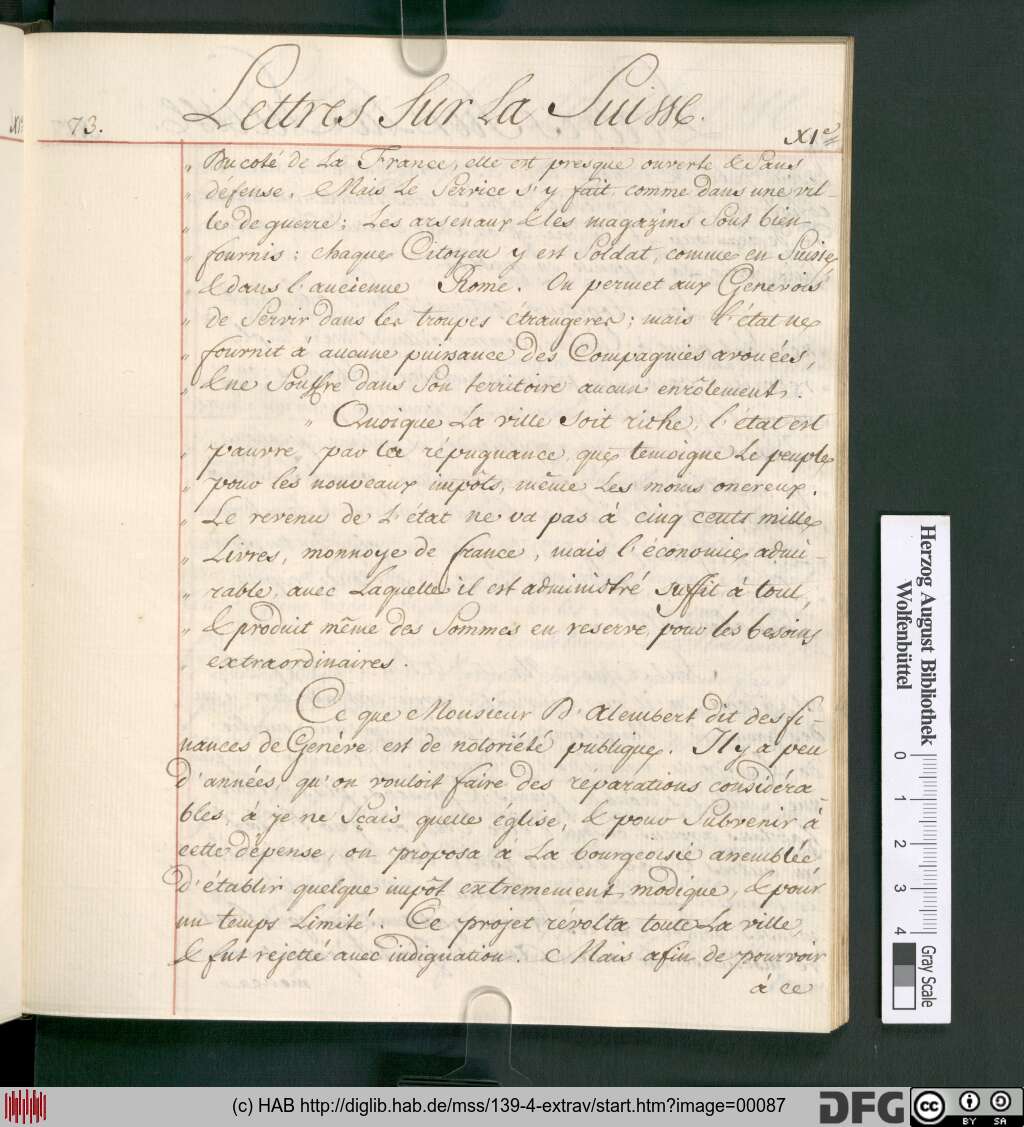 Lettres sur La Suisse.
73.
XIe
„ Du coté de La France, elle est presque ouverte & sans
„ défense. Mais Le Service s'y fait comme dans une vil-
„ le de guerre; Les arsenaux & les magazins sont bien
„ fournis: chaque Citoyen y est Soldat, comme en Suisse,
„ & dans l'ancienne Rome. On permet aux Genévois
„ de Servir dans les troupes étrangeres; mais l'état ne
„ fournit à aucune puissance des Compagnies avouées,
„ & ne Souffre dans Son territoire aucun enrôlement.
„ Quoique La ville soit riche, l'état est
„ pauvre par la répugnance, que temoigne Le peuple
„ pour les nouveaux impôts, même Les moins onereux.
„ Le revenu de L'état ne va pas à cinq cents mille
„ Livres, monnoye de france, mais l'économie admi-
„ rable, avec Laquelle il est administré suffit à tout,
„ & produit même des Sommes en reserve pour les besoins
„ extraordinaires.
Ce que Monsieur D'Alembert dit des fi-
nances de Genève est de notoriété publique. Il y a peu
d'années, qu'on vouloit faire des réparations considéra
bles, à je ne Sçais quelle église, & pour Subvenir à
cette dépense, on proposa à La bourgeoisie assemblée
d'établir quelque impôt extremement modique, & pour
un temps Limité. Ce projet révolta toute La ville,
& fut rejetté avec indignation. Mais afin de pourvoir
à ce
Herzog August Bibliothek
Wolfenbüttel
0 1 2 3 4
Gray Scale
(c) HAB http://diglib.hab.de/mss/139-4-extrav/start.htm?image=00087
DFG
cc BY SA